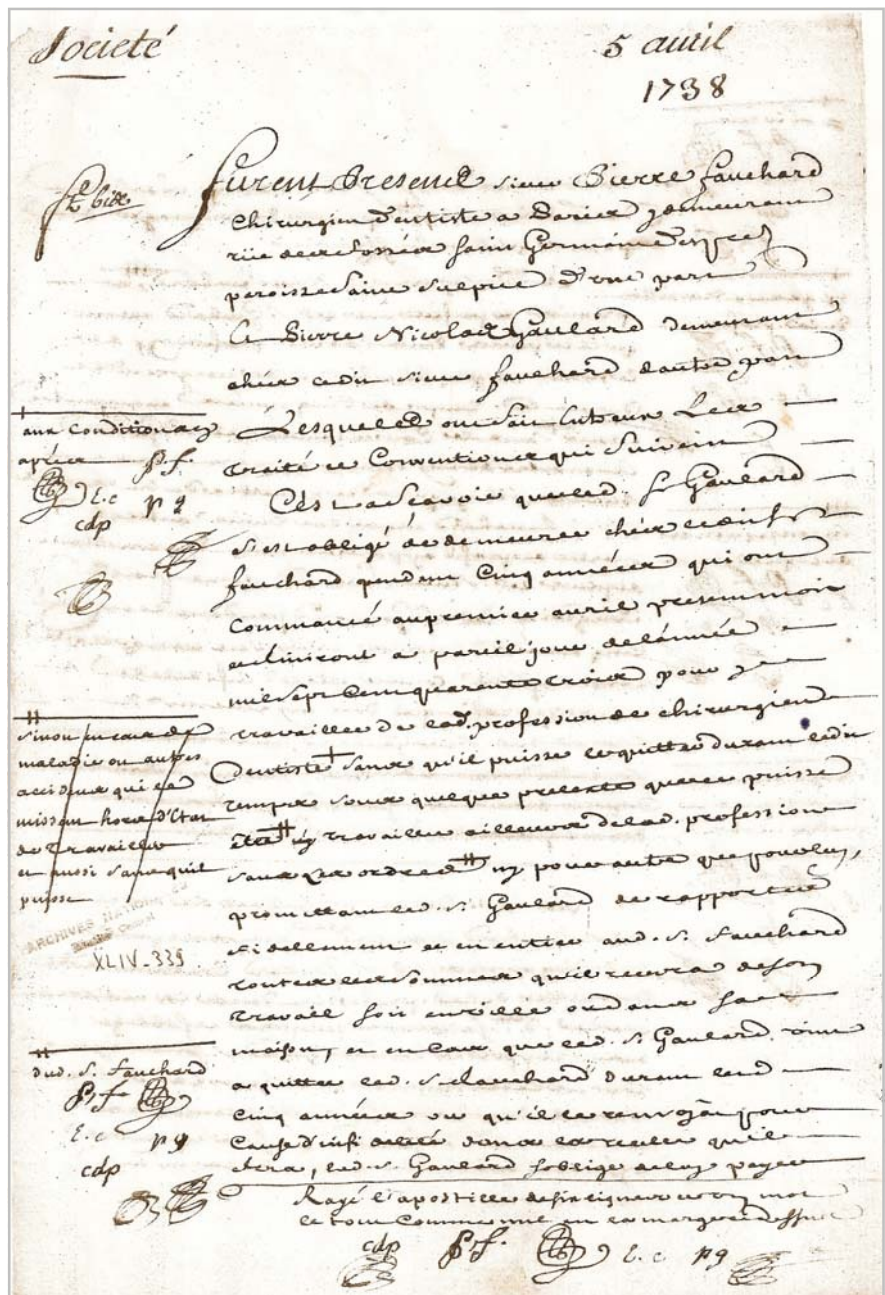 Societé
5 auril
1738
furent Presens sieur Pierre fauchard
Chirurgien Dentiste a Paris y demeurant
rüe des fossés saint Germain Desprez
paroisse saint sulpice D'une part
Et Pierre Nicolas Gaulard demeurant
chés cedit sieur fauchard d'autre part
Lesquels ont fait entreux Les
traité et Conventions qui suivent
C'est a scavoir queled. S. Gaulard
s'est obligé de demeurer chés ledit S.
fauchard pendant Cinq années qui ont
commancé au premier auril present mois
et finiront a pareil jour de l'année
mil sept Cent quarente trois pour y
travailler de lad. profession de chirurgien
Dentiste sans qu'il puisse le quitter durant ledit
temps sous quelque pretexte que ce puisse
être ny travailler ailleurs de lad. profession
sans ses ordres ny pour autre que pour luy,
promettant led. S. Gaulard de rapporter
fidellement et en entier aud. S. fauchard
toutes les sommes qu'il recevra de son
travail soit en ville ou dans sa
maison, et en Cas que led. S. Gaulard vint
a quitter led. S. fauchard durant lesd.
Cinq années ou qu'il le renvoyât pour
Cause d'infidelité dans les qu'il
fera, led. S. Gaulard s'oblige de luy payer
Rayé l'apostille
en la marge
cdp P.f. E.c p g
aux conditions cy
après
P.f.
E.c p g
cdp
sinon en cas de
maladie ou autres
accidens qui le
missent hors d'Etat
de travailler
et aussi sans quil
puisse
ARCHIVES NATIONALES
XLIV-339
dud. S. fauchard
P.f.
E.c p g
cdp